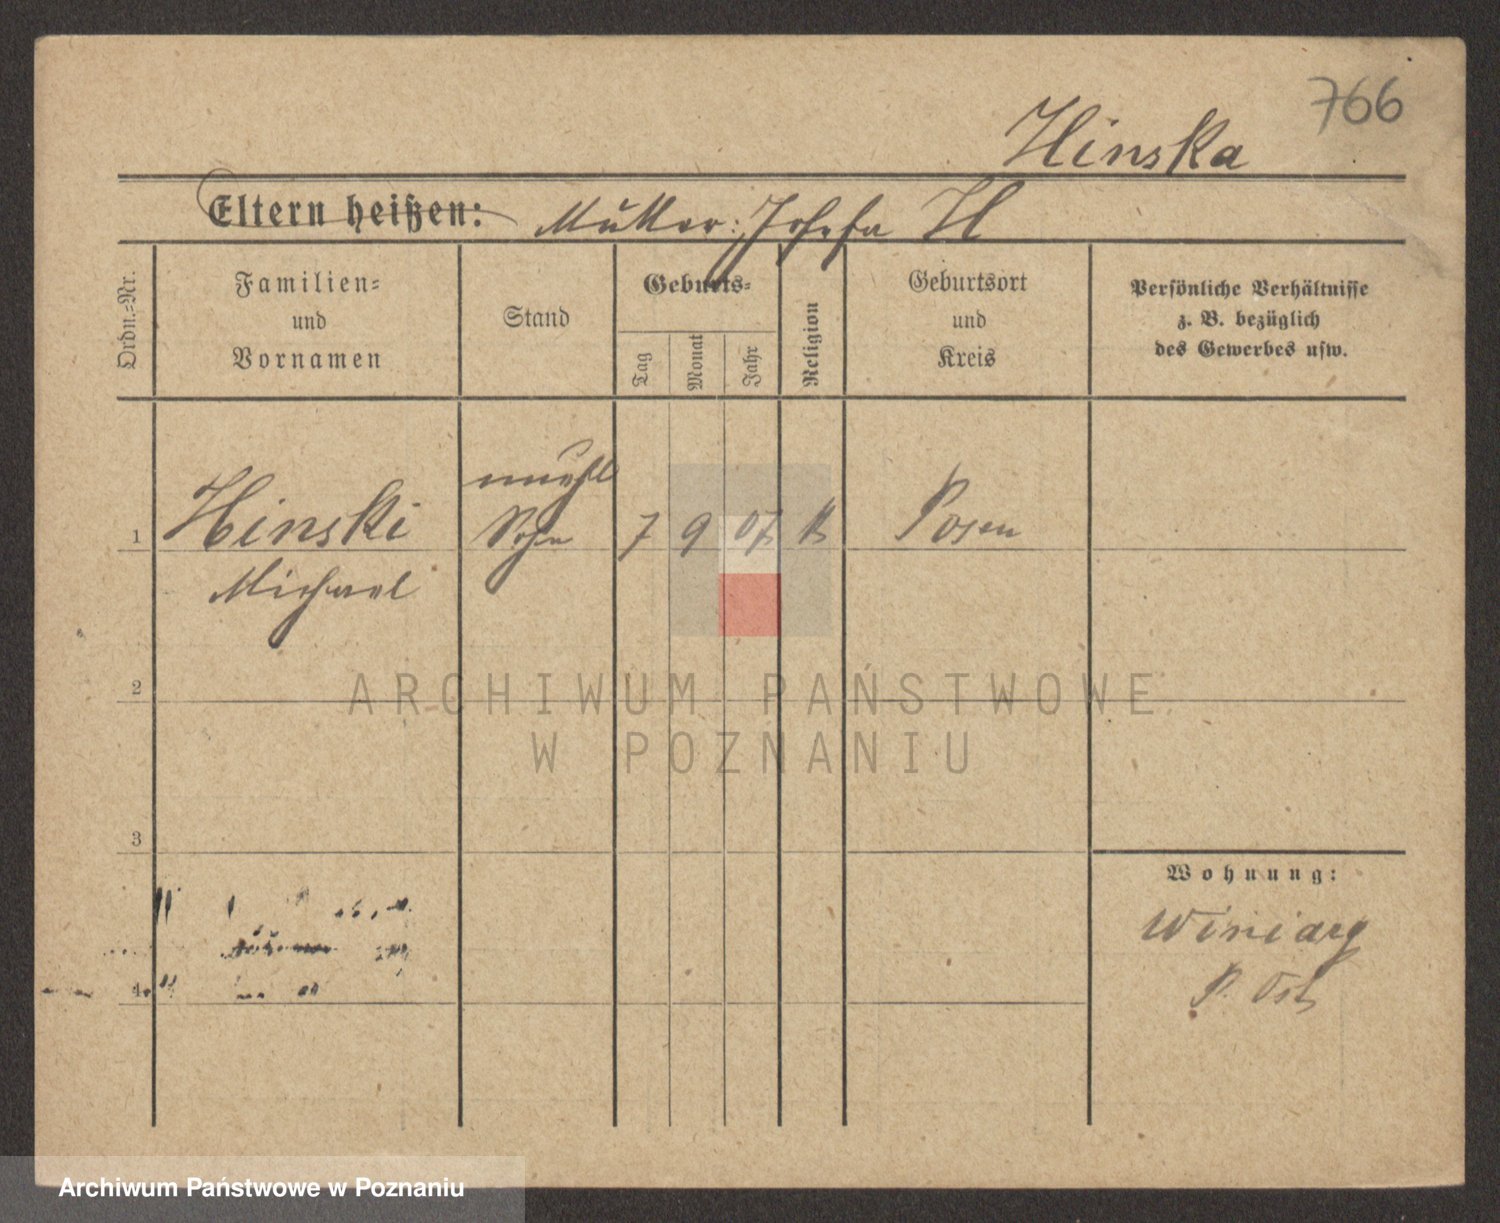 766
Hinska
Eltern heißen: Mutter: Josefa H
Ordn.=Nr.
Familien=
und
Vornamen
Stand
Geburts=
Tag
Monat
Jahr
Religion
Geburtsort
und
Kreis
Persönliche Verhältnisse
z. B. bezüglich
des Gewerbes usw.
1
Hinski
Michael
unehl
Sohn
7 9 07 K
Posen
2
ARCHIWUM PAŃSTWOWE
W POZNANIU
3
Wohnung:
Winiary
P. Ost
4
Archiwum Państwowe w Poznaniu